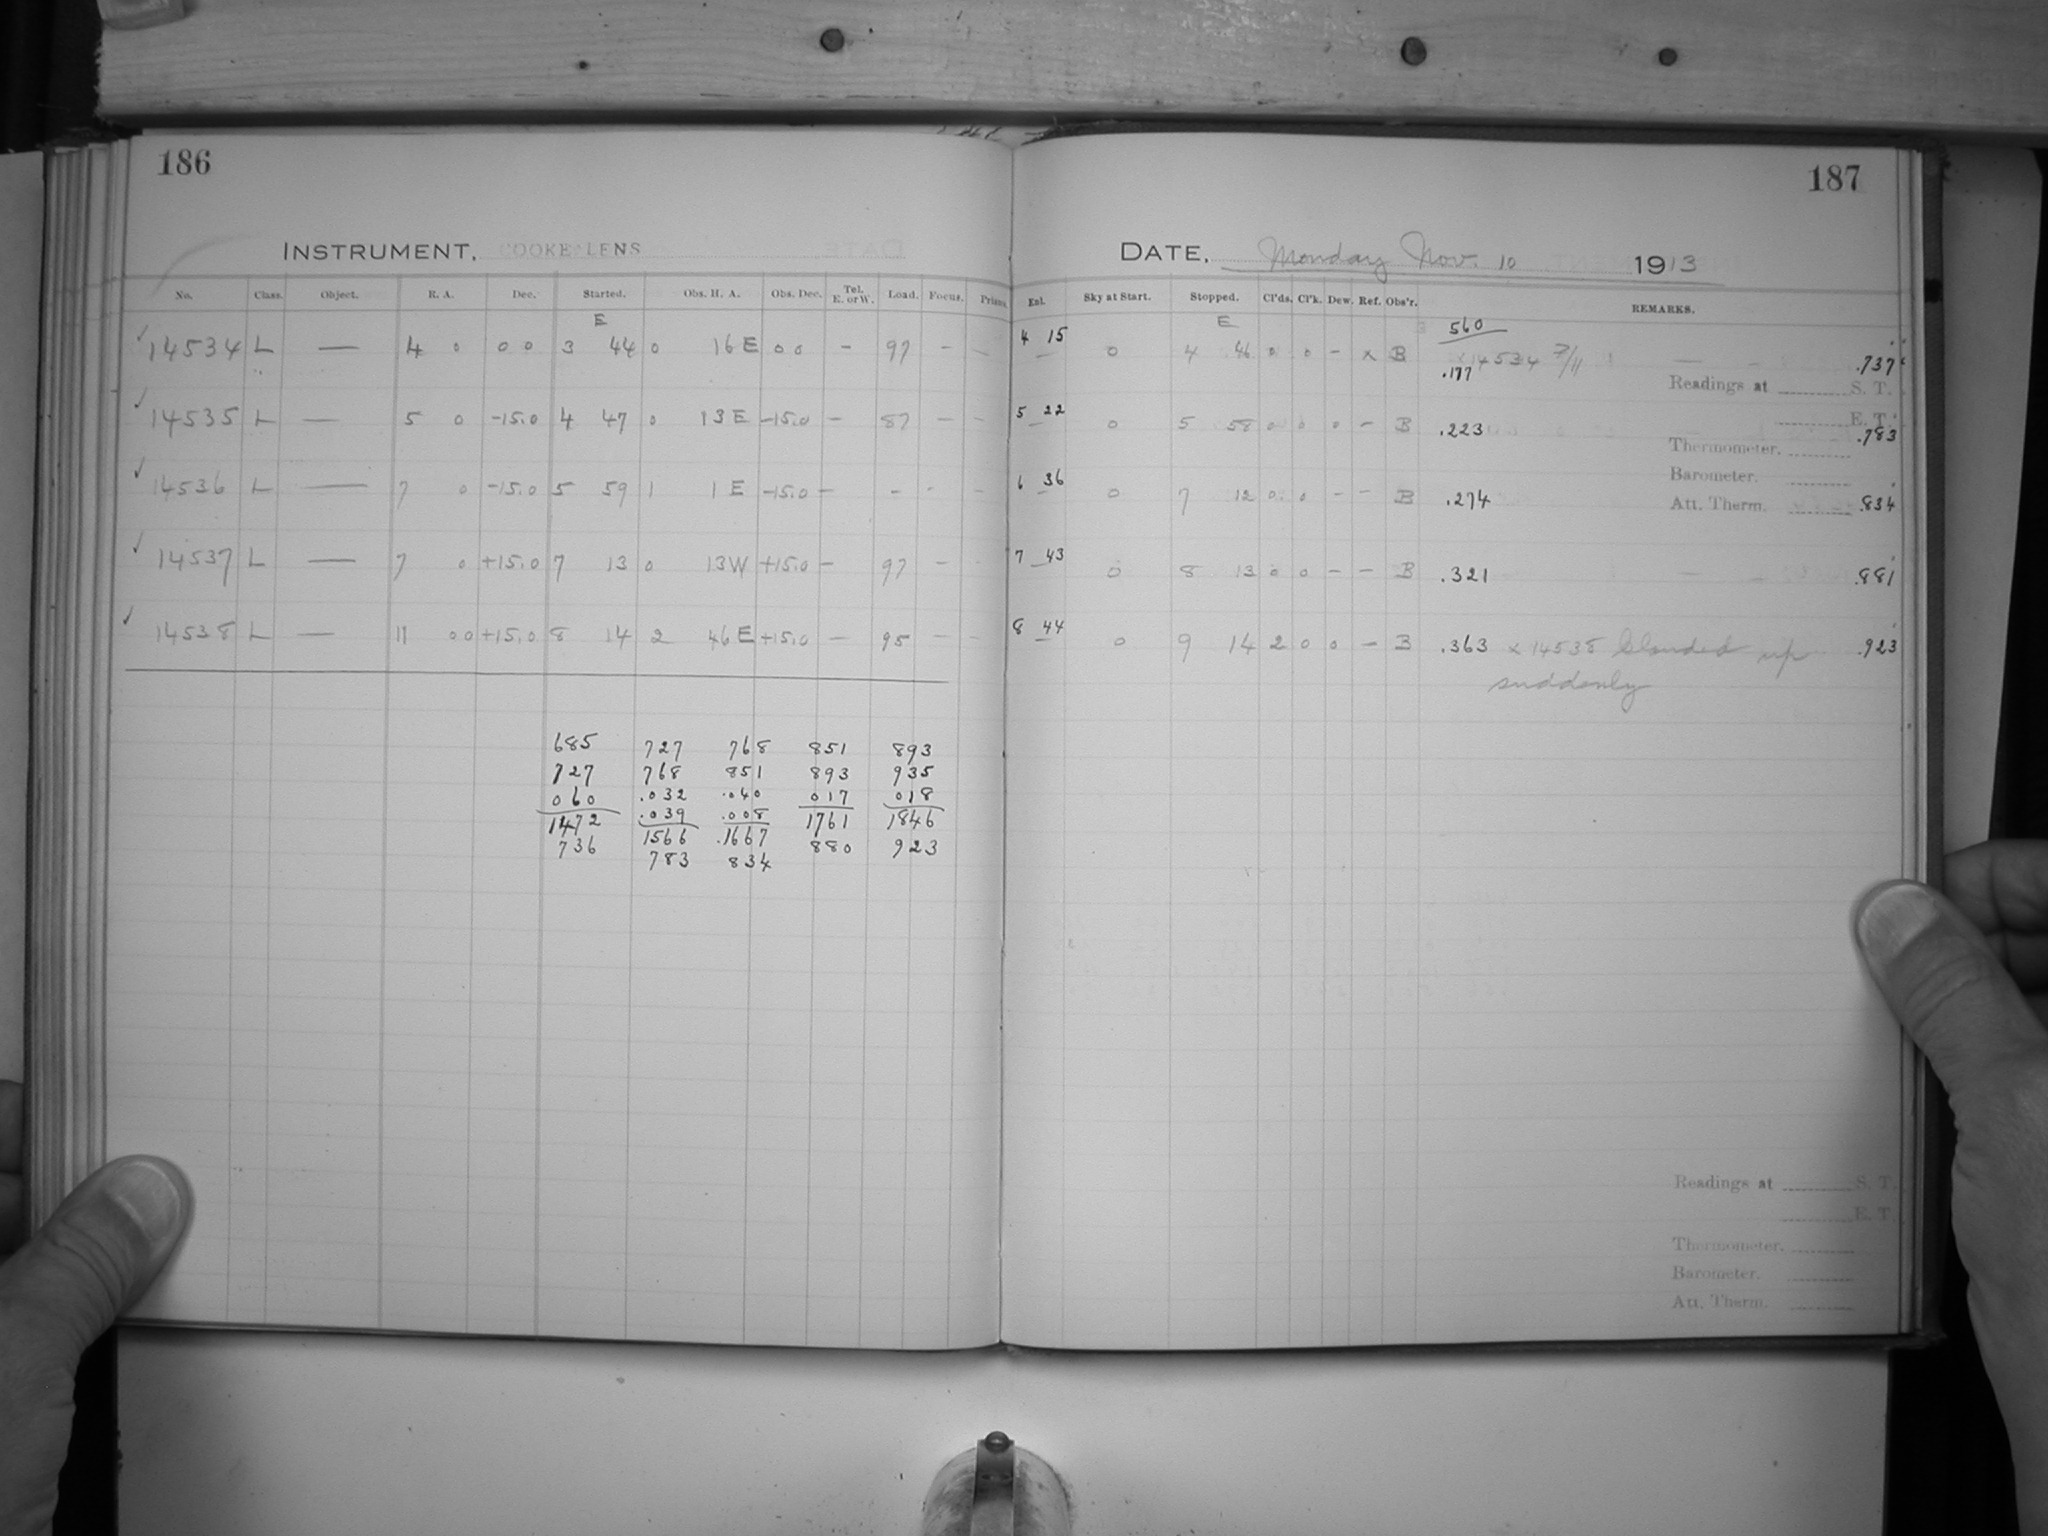 186
187
INSTRUMENT, COOKE LENS
DATE, Monday Nov. 10 1913
No. Class. Object. R. A. Dec. Started. Obs. H. A. Obs. Dec. Tel. E. or W. Load. Focus. Prism. Exl. Sky at Start. Stopped. Cl'ds. Cl'k. Dew. Ref. Obs'r. REMARKS.
E E 560
✓ 14534 L — 4 0 0 0 3 44 0 16 E 0 0 - 97 - - 4 15 0 4 46 0 0 - x B x 14534 7/11 .737
.177 Readings at S. T.
✓ 14535 L — 5 0 -15.0 4 47 0 13 E -15.0 - 87 - - 5 22 0 5 58 0 0 0 - B .223 E. T. .783
Thermometer.
Barometer.
✓ 14536 L — 7 0 -15.0 5 59 1 1 E -15.0 - - - - 6 36 0 7 12 0 0 - - B .274 Att. Therm. .834
✓ 14537 L — 7 0 +15.0 7 13 0 13 W +15.0 - 97 - - 7 43 0 8 13 0 0 - - B .321 .881
✓ 14538 L — 11 00 +15.0 8 14 2 46 E +15.0 - 95 - - 8 44 0 9 14 2 0 0 - B .363 x 14538 Clouded up .923
suddenly
685 727 768 851 893
727 768 851 893 935
060 .032 .040 017 018
1472 .039 .008 1761 1846
736 1566 .1667 880 923
783 834
Readings at S. T.
E. T.
Thermometer.
Barometer.
Att. Therm.